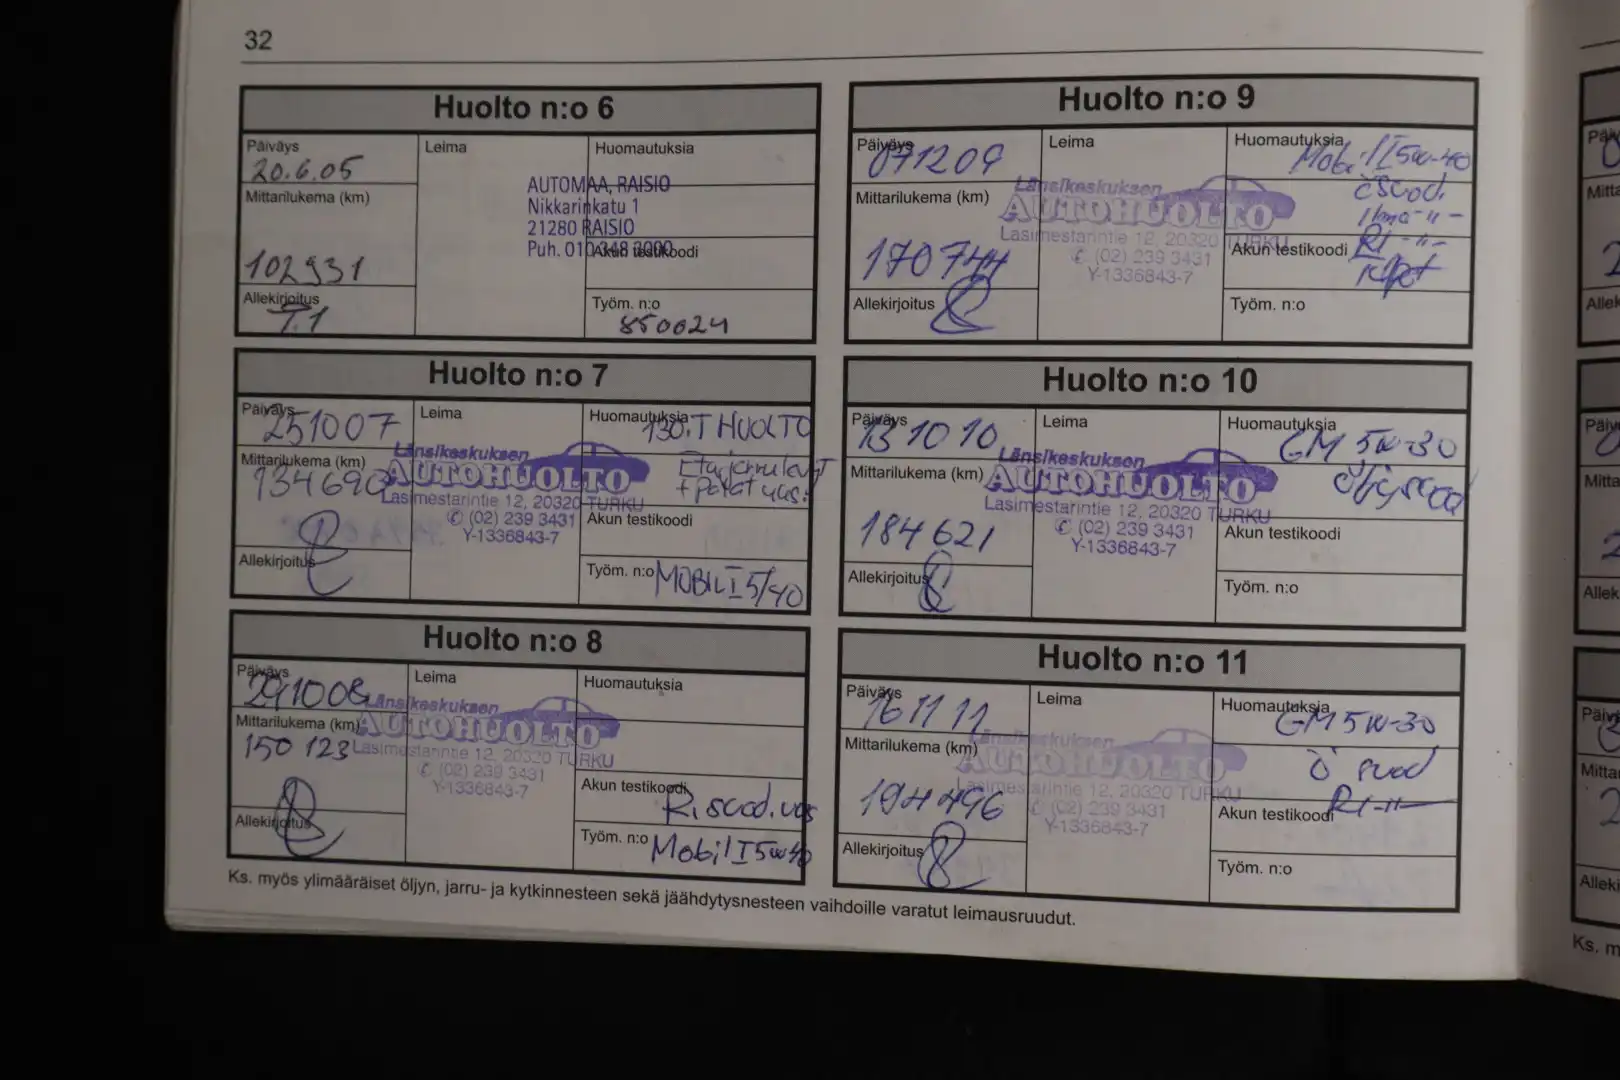 32
Huolto n:o 6
Päiväys
20.6.05
Leima
Huomautuksia
Mittarilukema (km)
102931
AUTOMAA, RAISIO
Nikkarinkatu 1
21280 RAISIO
Puh. 010 348 3000
Akun testikoodi
Allekirjoitus
Työm. n:o
850024
Huolto n:o 7
Päiväys
251007
Leima
Huomautuksia
130.T HUOLTO
Mittarilukema (km)
134690
Länsikeskuksen
AUTOHUOLTO
Lasimestarintie 12, 20320 TURKU
✆ (02) 239 3431
Y-1336843-7
Akun testikoodi
Allekirjoitus
Työm. n:o
MOBIL I 5/40
Huolto n:o 8
Päiväys
291008
Leima
Huomautuksia
Mittarilukema (km)
150 123
Länsikeskuksen
AUTOHUOLTO
Lasimestarintie 12, 20320 TURKU
✆ (02) 239 3431
Y-1336843-7
Akun testikoodi
Ri suod.
Allekirjoitus
Työm. n:o
Mobil I 5w40
Huolto n:o 9
Päiväys
071209
Leima
Huomautuksia
Mobil I 5w-40
ösuod.
Ilma -"-
Ri -"-
Mittarilukema (km)
170744
Länsikeskuksen
AUTOHUOLTO
Lasimestarintie 12, 20320 TURKU
✆ (02) 239 3431
Y-1336843-7
Akun testikoodi
Allekirjoitus
Työm. n:o
Huolto n:o 10
Päiväys
131010
Leima
Huomautuksia
GM 5w-30
Öljysuod
Mittarilukema (km)
184621
Länsikeskuksen
AUTOHUOLTO
Lasimestarintie 12, 20320 TURKU
✆ (02) 239 3431
Y-1336843-7
Akun testikoodi
Allekirjoitus
Työm. n:o
Huolto n:o 11
Päiväys
161111
Leima
Huomautuksia
GM 5w-30
Ö suod
Ri -"-
Mittarilukema (km)
194496
Länsikeskuksen
AUTOHUOLTO
Lasimestarintie 12, 20320 TURKU
✆ (02) 239 3431
Y-1336843-7
Akun testikoodi
Allekirjoitus
Työm. n:o
Ks. myös ylimääräiset öljyn, jarru- ja kytkinnesteen sekä jäähdytysnesteen vaihdoille varatut leimausruudut.